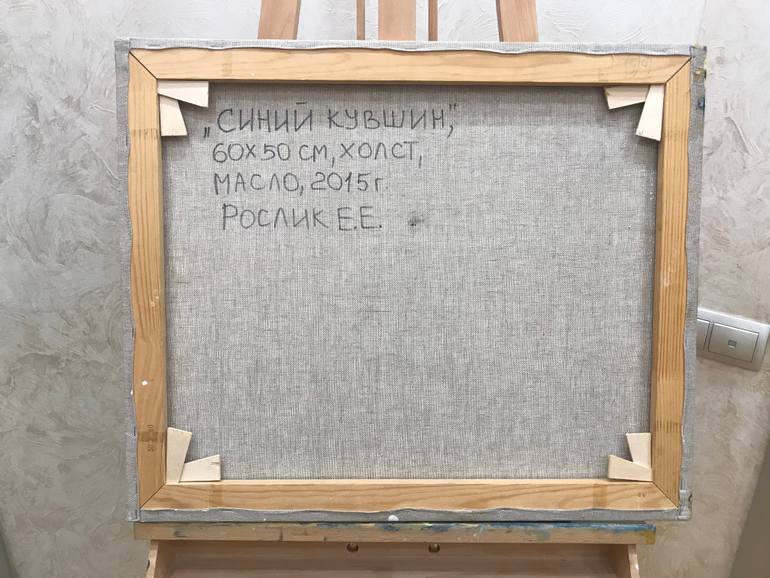 „СИНИЙ КУВШИН,"
60Х50 СМ, ХОЛСТ,
МАСЛО, 2015г.
РОСЛИК Е.Е.